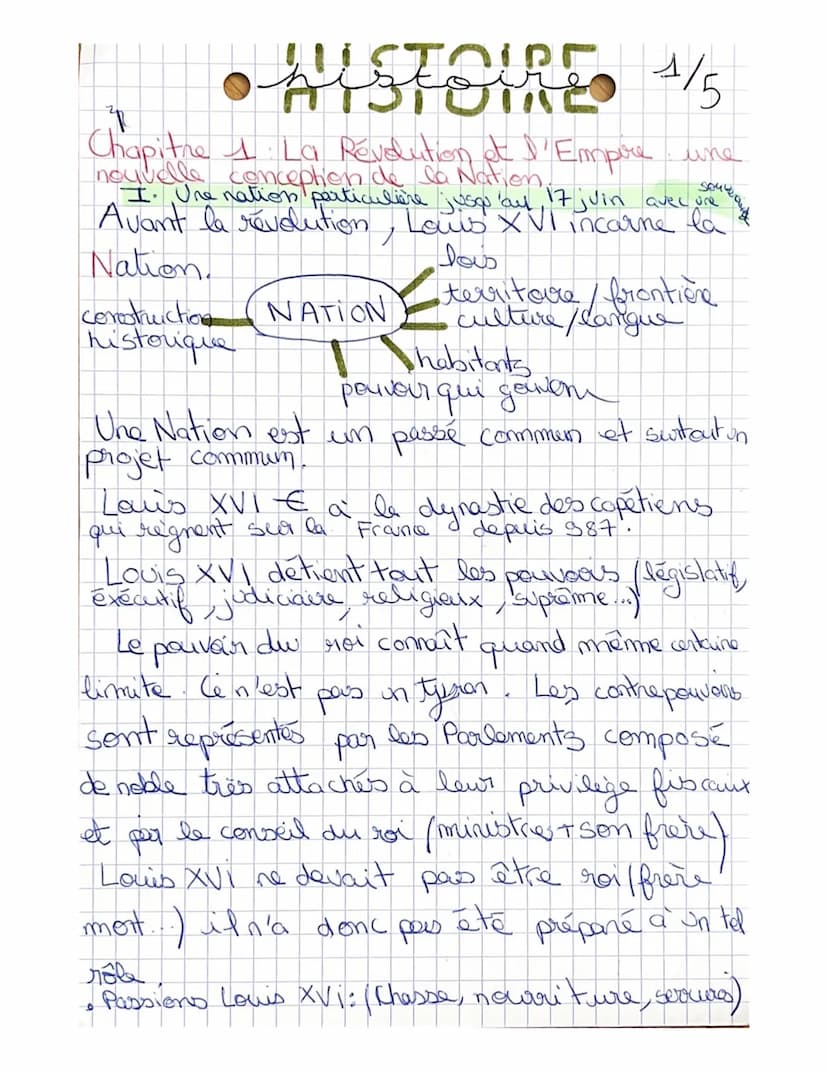 HISTOIRE
histoire 1/5
Chapitre 1 : La Révolution et l'Empire : une
nouvelle conception de la Nation.
I. Une nation particulière jusqu'au 17 juin avec une
Avant la révolution, Louis XVI incarne la
Nation.
lois
territoire / frontière
NATION
construction
culture/langue
historique
habitants
pouvoir qui gouverne
Une Nation est un passé commun et surtout un
projet commum.
Louis XVI € à la dynastie des capétiens
qui règnent sur la France depuis 987.
Louis XVI détient tout les pouvoirs (législatif,
éxécutif, judiciaire, religieux, suprême...)
Le pouvoir du roi connaît quand même certaine
limite. Ce n'est pas un tyran. Les contrepouvoirs
sont représentés par les Parlements composé
de noble très attachés à leur privilège fiscaux
et par le conseil du roi (ministres + son frère)
Louis XVI ne devait pas être roi (frère
mort...) il n'a donc pas été préparé à un tel
rôle.
• Passions Louis XVI : (Chasse, nourriture, serrures)